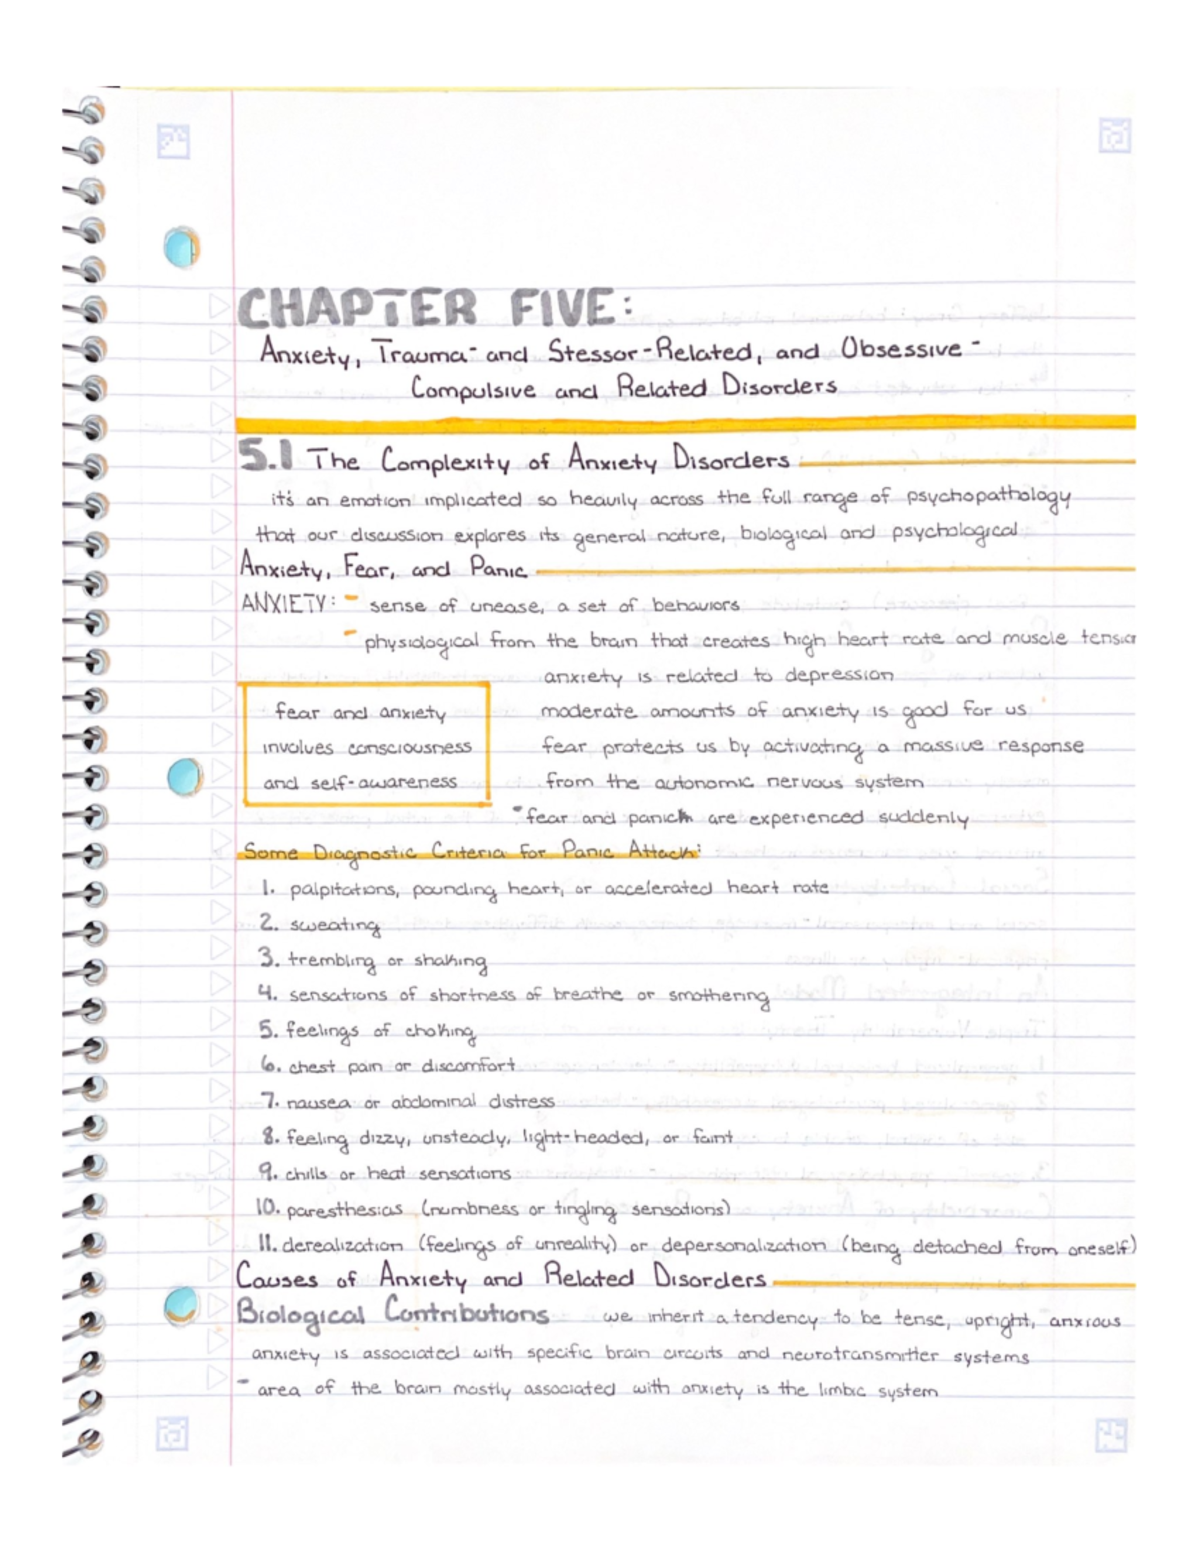 CHAPTER FIVE:
Anxiety, Trauma- and Stessor-Related, and Obsessive-
Compulsive and Related Disorders
5.1 The Complexity of Anxiety Disorders
it's an emotion implicated so heavily across the full range of psychopathology
that our discussion explores its general nature, biological and psychological
Anxiety, Fear, and Panic
ANXIETY: - sense of unease, a set of behaviors
- physiological from the brain that creates high heart rate and muscle tension
anxiety is related to depression
fear and anxiety
involves consciousness
and self-awareness
moderate amounts of anxiety is good for us
fear protects us by activating a massive response
from the autonomic nervous system
- fear and panic are experienced suddenly
Some Diagnostic Criteria for Panic Attack:
1. palpitations, pounding heart, or accelerated heart rate
2. sweating
3. trembling or shaking
4. sensations of shortness of breathe or smothering
5. feelings of choking
6. chest pain or discomfort
7. nausea or abdominal distress
8. feeling dizzy, unsteady, light-headed, or faint
9. chills or heat sensations
10. paresthesias (numbness or tingling sensations)
11. derealization (feelings of unreality) or depersonalization (being detached from oneself)
Causes of Anxiety and Related Disorders
Biological Contributions we inherit a tendency to be tense, upright, anxious
anxiety is associated with specific brain circuits and neurotransmitter systems
- area of the brain mostly associated with anxiety is the limbic system